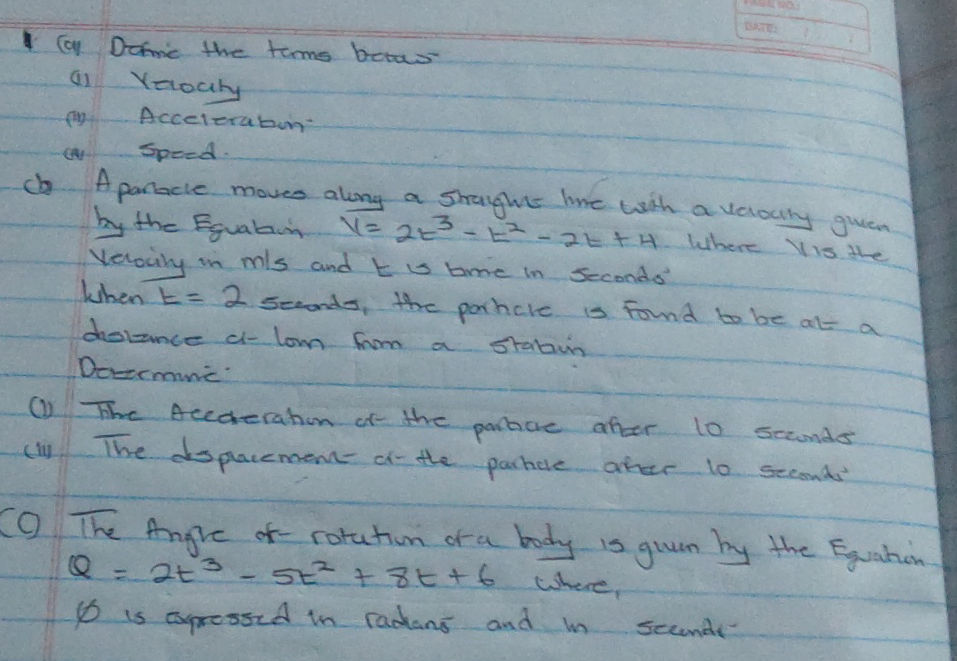 PAGE NO.:
DATE: / /
1 (a) Define the terms below
(i) Velocity
(ii) Acceleration
(iii) Speed.
(b) A particle moves along a straight line with a velocity given
by the Equation V = 2t³ - t² - 2t + 4 where V is the
Velocity in m/s and t is time in seconds
When t = 2 seconds, the particle is found to be at a
distance of 10m from a station
Determine:
(i) The Acceleration of the particle after 10 seconds
(ii) The displacement of the particle after 10 seconds
(C) The Angle of rotation of a body is given by the Equation
Q = 2t³ - 5t² + 8t + 6 where,
Q is expressed in radians and in seconds